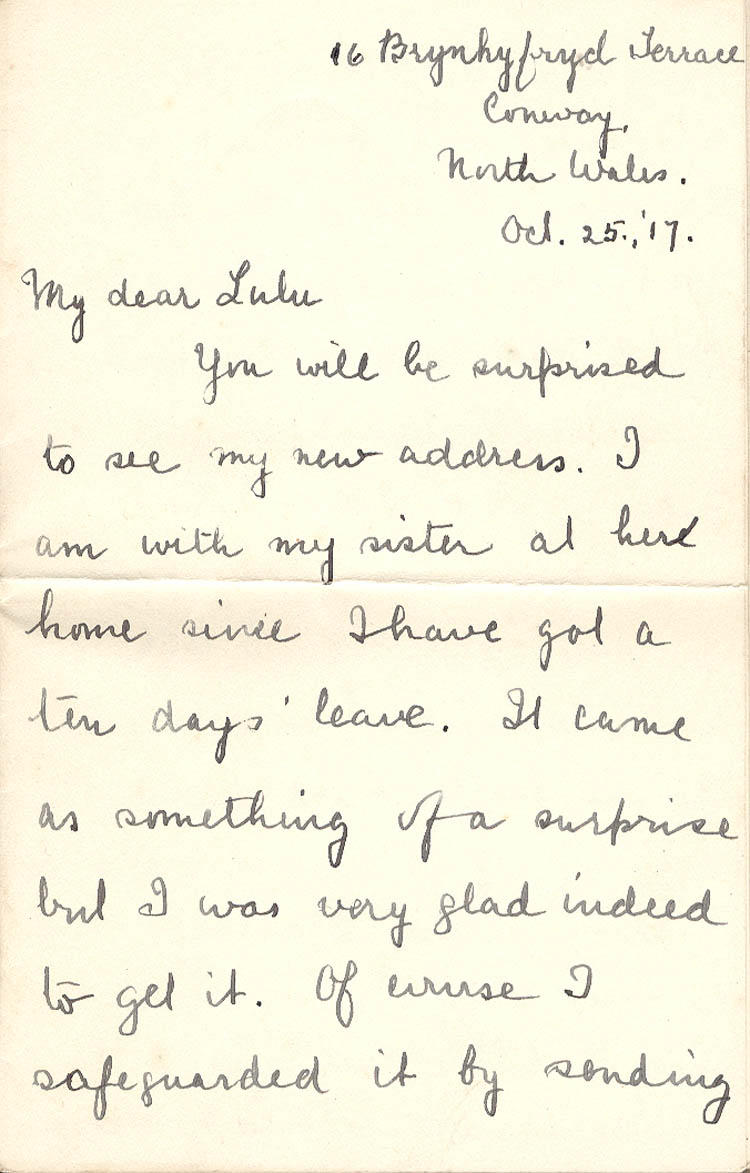 16 Brynhyfryd Terrace
Conway,
North Wales.
Oct. 25., '17.
My dear Lulu
You will be surprised
to see my new address. I
am with my sister at her
home since I have got a
ten days' leave. It came
as something of a surprise
but I was very glad indeed
to get it. Of course I
safeguarded it by sending